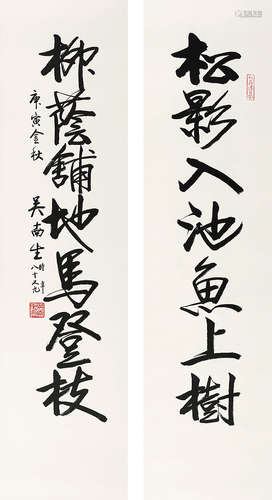 松影入池魚上樹
柳蔭鋪地馬登枝
庚寅金秋
吳南生
時年
八十又九